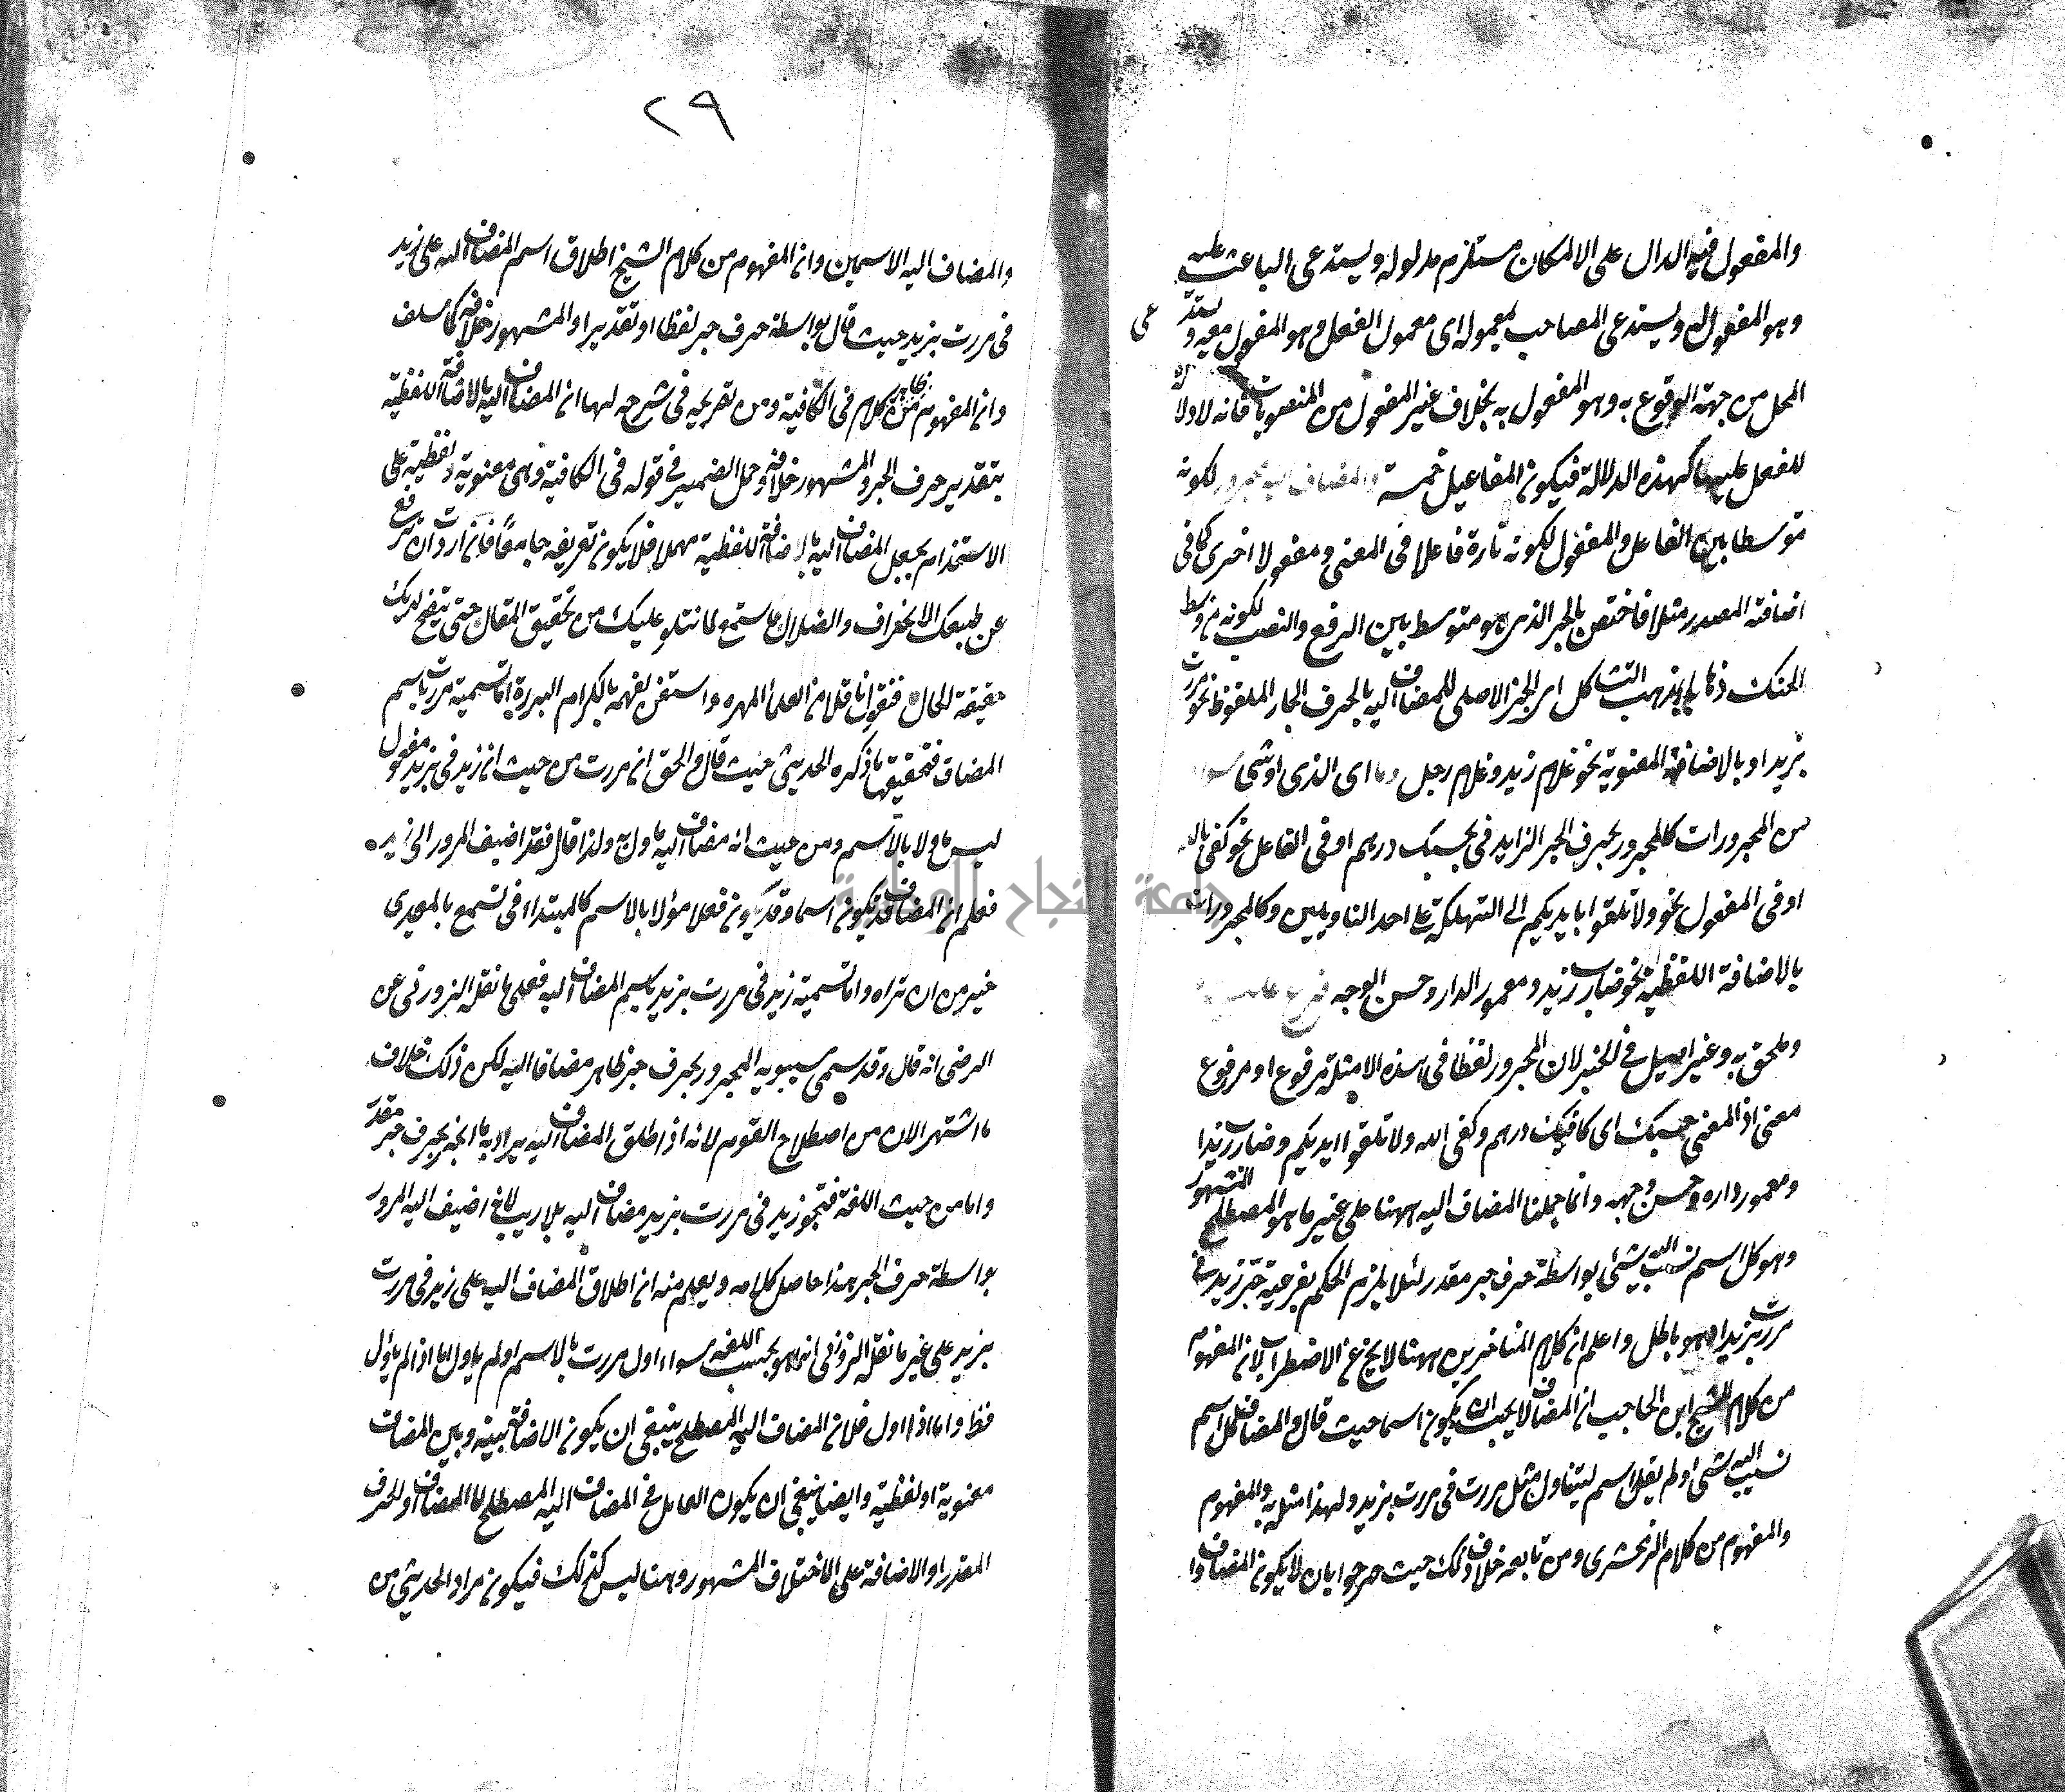 والمفعول فيه الدال على الامكان مستلزم مدلوله ويستدعى الباعث عليه
وهو المفعول له ويستدعى المصاحب لمعموله اى معمول الفعل وهو المفعول معه ويستدعى
المحل من جهة الوقوع به وهو المفعول به بخلاف غير المفعول من المنصوبات فانه لا دلالة
للفعل عليها كهذه الدلالة فيكون المفاعيل خمسة والمضاف اليه مجرور لكونه
متوسطا بين الفاعل والمفعول لكونه تارة فاعلا فى المعنى ومفعولا اخرى كما فى
اضافة المصدر مثلا فاختص بالجر الذى هو متوسط بين الرفع والنصب لكونه من وسط
الحنك ذهابا بمذهب التشاكل اى الجر الاصلى للمضاف اليه بالحرف الجار الملفوظ نحو مررت
بزيد او بالاضافة المعنوية نحو غلام زيد وغلام رجل وما اى الذى او شئ سواه
من المجرورات كالمجرور بحرف الجر الزايد فى بحسبك درهم او فى الفاعل نحو كفى بالله
او فى المفعول نحو ولا تلقوا بايديكم الى التهلكة على احد التاويلين وكالمجرورات
بالاضافة اللفظية نحو ضارب زيد ومعمور الدار وحسن الوجه فرع عليه
وملحق به وغير اصيل فى الجر لان المجرور لفظا فى هذه الامثلة مرفوع او مرفوع
معنى اذ المعنى حسبك اى كافيك درهم وكفى الله ولا تلقوا ايديكم وضارب زيدا
ومعمور داره وحسن وجهه وانما حملنا المضاف اليه ههنا على غير ما هو المصطلح المشهور
وهو كل اسم نسب اليه شئ بواسطة حرف جر مقدر لئلا يلزم الحكم بفرعية جر زيد فى
مررت بزيد وهو باطل واعلم ان كلام المتاخرين ههنا لا يخ عن الاضطراب لان المفهوم
من كلام الشيخ ابن الحاجب ان المضاف لا يجب ان يكون اسما حيث قال والمضاف كل اسم
نسب اليه شئ ولم يقل اسم ليتناول مثل مررت فى مررت بزيد ولهذا مثله به والمفهوم
والمفهوم من كلام الزمخشرى ومن تابعه خلاف ذلك حيث صرحوا بان لا يكون المضاف وا
٢٩
والمضاف اليه الا اسمين وان المفهوم من كلام الشيخ اطلاق اسم المضاف اليه على زيد
فى مررت بزيد حيث قال بواسطة حرف جر لفظا او تقديرا والمشهور خلافه كما سلف
وان المفهوم من ظاهر كلامه فى الكافية ومن تصريحه فى شرحه لها ان المضاف اليه بالاضافة اللفظية
بتقدير حرف الجر والمشهور خلافه وحمل الضمير فى قوله فى الكافية وهى معنوية ولفظية على
الاستخدام يجعل المضاف اليه بالاضافة اللفظية مهملا فلا يكون تعريفه جامعا فان اردت ان ترفع
عن طبعك الانحراف والضلال فاستمع لما نتلو عليك من تحقيق المقال حتى يتضح لديك
حقيقة الحال فنقول ناقلا من العلماء المهره واستعن بفهمه بالكرام البررة اما تسمية مررت باسم
المضاف فتحقيقها ما ذكره الحديثى حيث قال والحق ان مررت من حيث ان زيد فى بزيد مفعول
ليس ماولا بالاسم ومن حيث انه مضاف اليه ماول به ولذا قال فقد اضيف المرور الى زيد
فعلم ان المضاف قد يكون اسما وقد يكون فعلا مؤلا بالاسم كالمبتدا فى تسمع بالمعيدى
خير من ان تراه واما تسمية زيد فى مررت بزيد باسم المضاف اليه فعلى ما نقله الزوزنى عن
الرضى انه قال وقد سمى سيبويه المجرور بحرف جر ظاهر مضافا اليه لكن ذلك خلاف
ما اشتهر الان من اصطلاح القوم لانه اذ اطلق المضاف اليه يراد به ما انجر بحرف جر مقدر
واما من حيث اللغة فتجوز زيد فى مررت بزيد مضاف اليه بلا ريب لانه اضيف اليه المرور
بواسطة حرف الجر هذا حاصل كلامه ويعلم منه ان اطلاق المضاف اليه على زيد فى مررت
بزيد على غير ما نقله الزوزنى انما هو بحسب اللغة سواء اول مررت بالاسم او لم ياول اما اذا لم ياول
فظ واما اذا اول فلان المضاف اليه المصطلح ينبغى ان يكون الاضافة بينه وبين المضاف
معنوية او لفظية وايضا ينبغى ان يكون العامل فى المضاف اليه المصطلح اما المضاف او الحرف
المقدر او الاضافة على الاختلاف المشهور وهنا ليس كذلك فيكون مراد الحديثى من
جامعة النجاح الوطنية